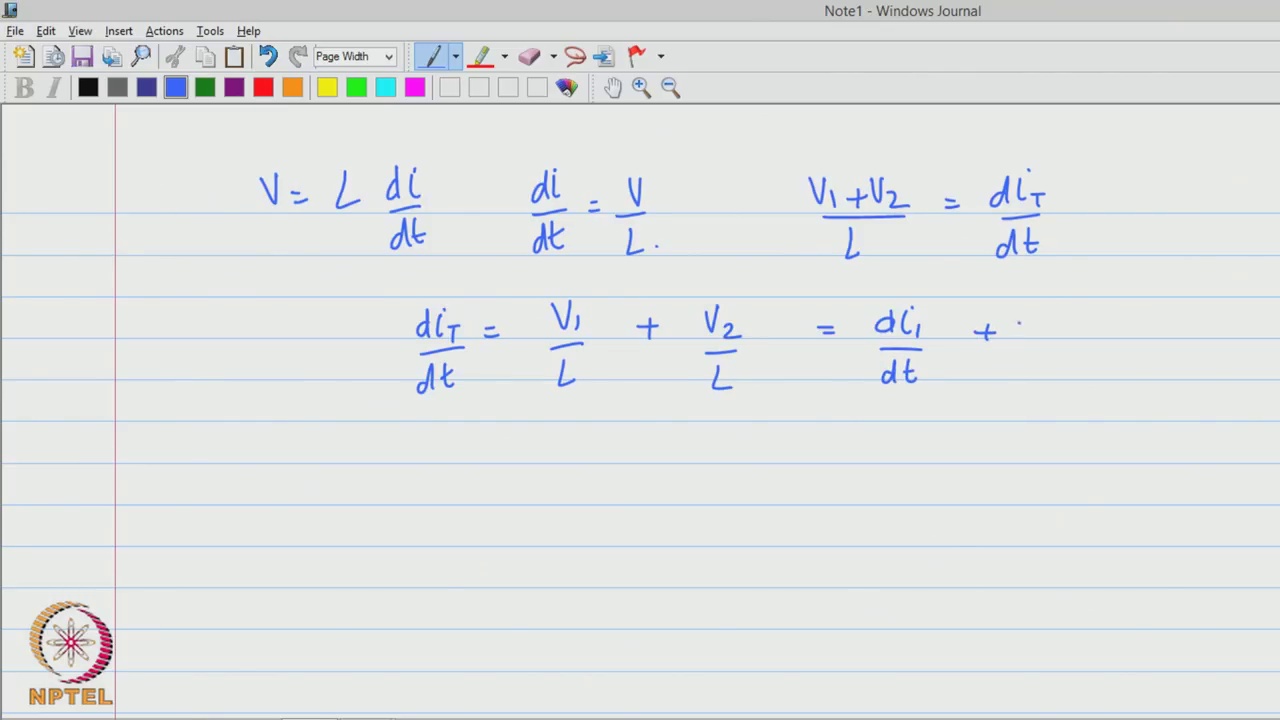 Note1 - Windows Journal
File Edit View Insert Actions Tools Help
Page Width
B I
V = L di/dt di/dt = V/L. V1+V2/L = diT/dt
diT/dt = V1/L + V2/L = di1/dt +
NPTEL